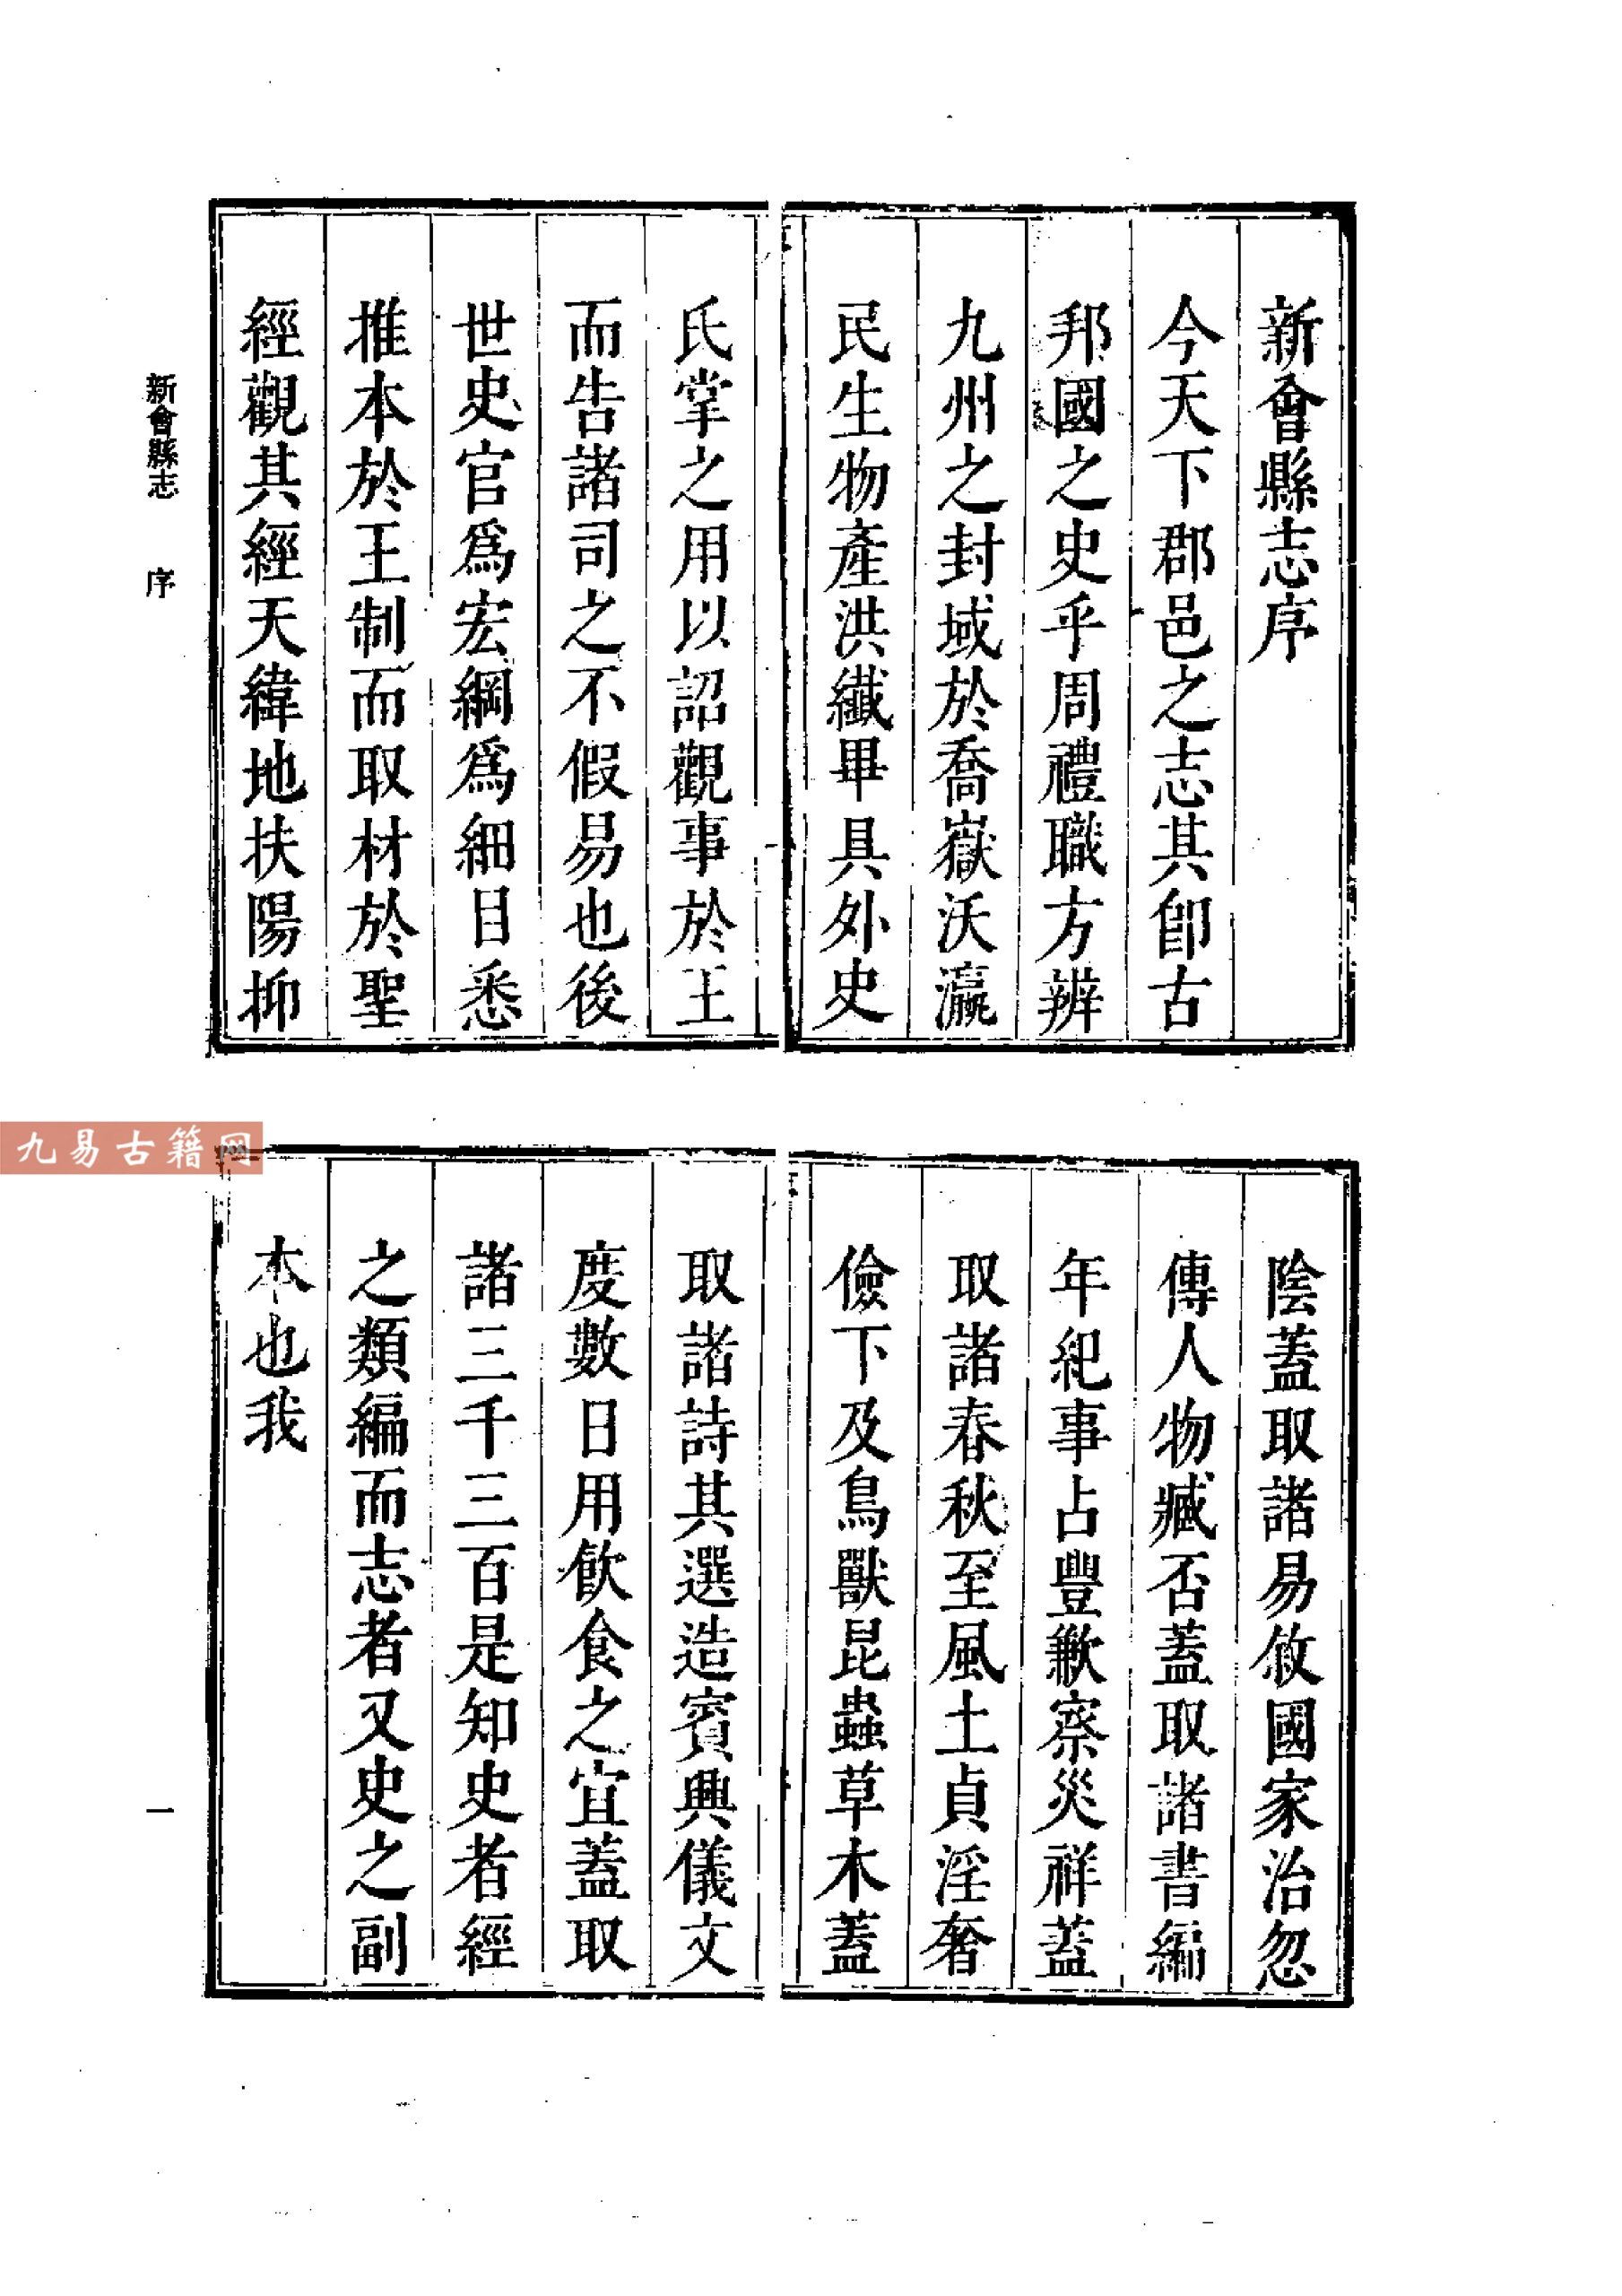 新會縣志序
今天下郡邑之志其卽古
邦國之史乎周禮職方辨
九州之封域於喬嶽沃瀛
民生物產洪纖畢具外史
氏掌之用以詔觀事於王
而告諸司之不假易也後
世史官爲宏綱爲細目悉
推本於王制而取材於聖
經觀其經天緯地扶陽抑
陰蓋取諸易敘國家治忽
傳人物臧否蓋取諸書編
年紀事占豐歉察災祥蓋
取諸春秋至風土貞淫奢
儉下及鳥獸昆蟲草木蓋
取諸詩其選造賓興儀文
度數日用飲食之宜蓋取
諸三千三百是知史者經
之類編而志者又史之副
本也我
新會縣志 序
一
九易古籍网